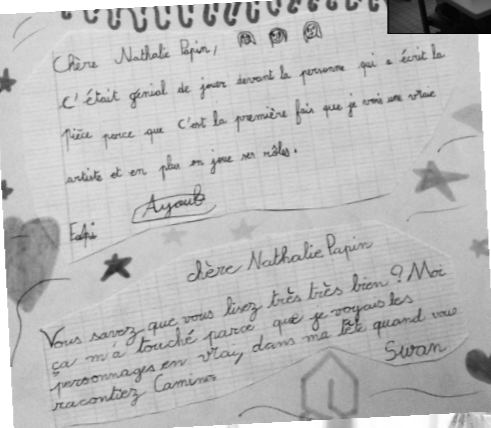 Chère Nathalie Papin,
C'était génial de jouer devant la personne qui a écrit la
pièce parce que c'est la première fois que je vois une vraie
artiste et en plus on joue ses rôles.
Ayoub
chère Nathalie Papin
Vous savez que vous lisez très très bien ? Moi
ça m'a touché parce que je voyais les
personnages en vrai, dans ma tête quand vous
racontiez Camino
Swan